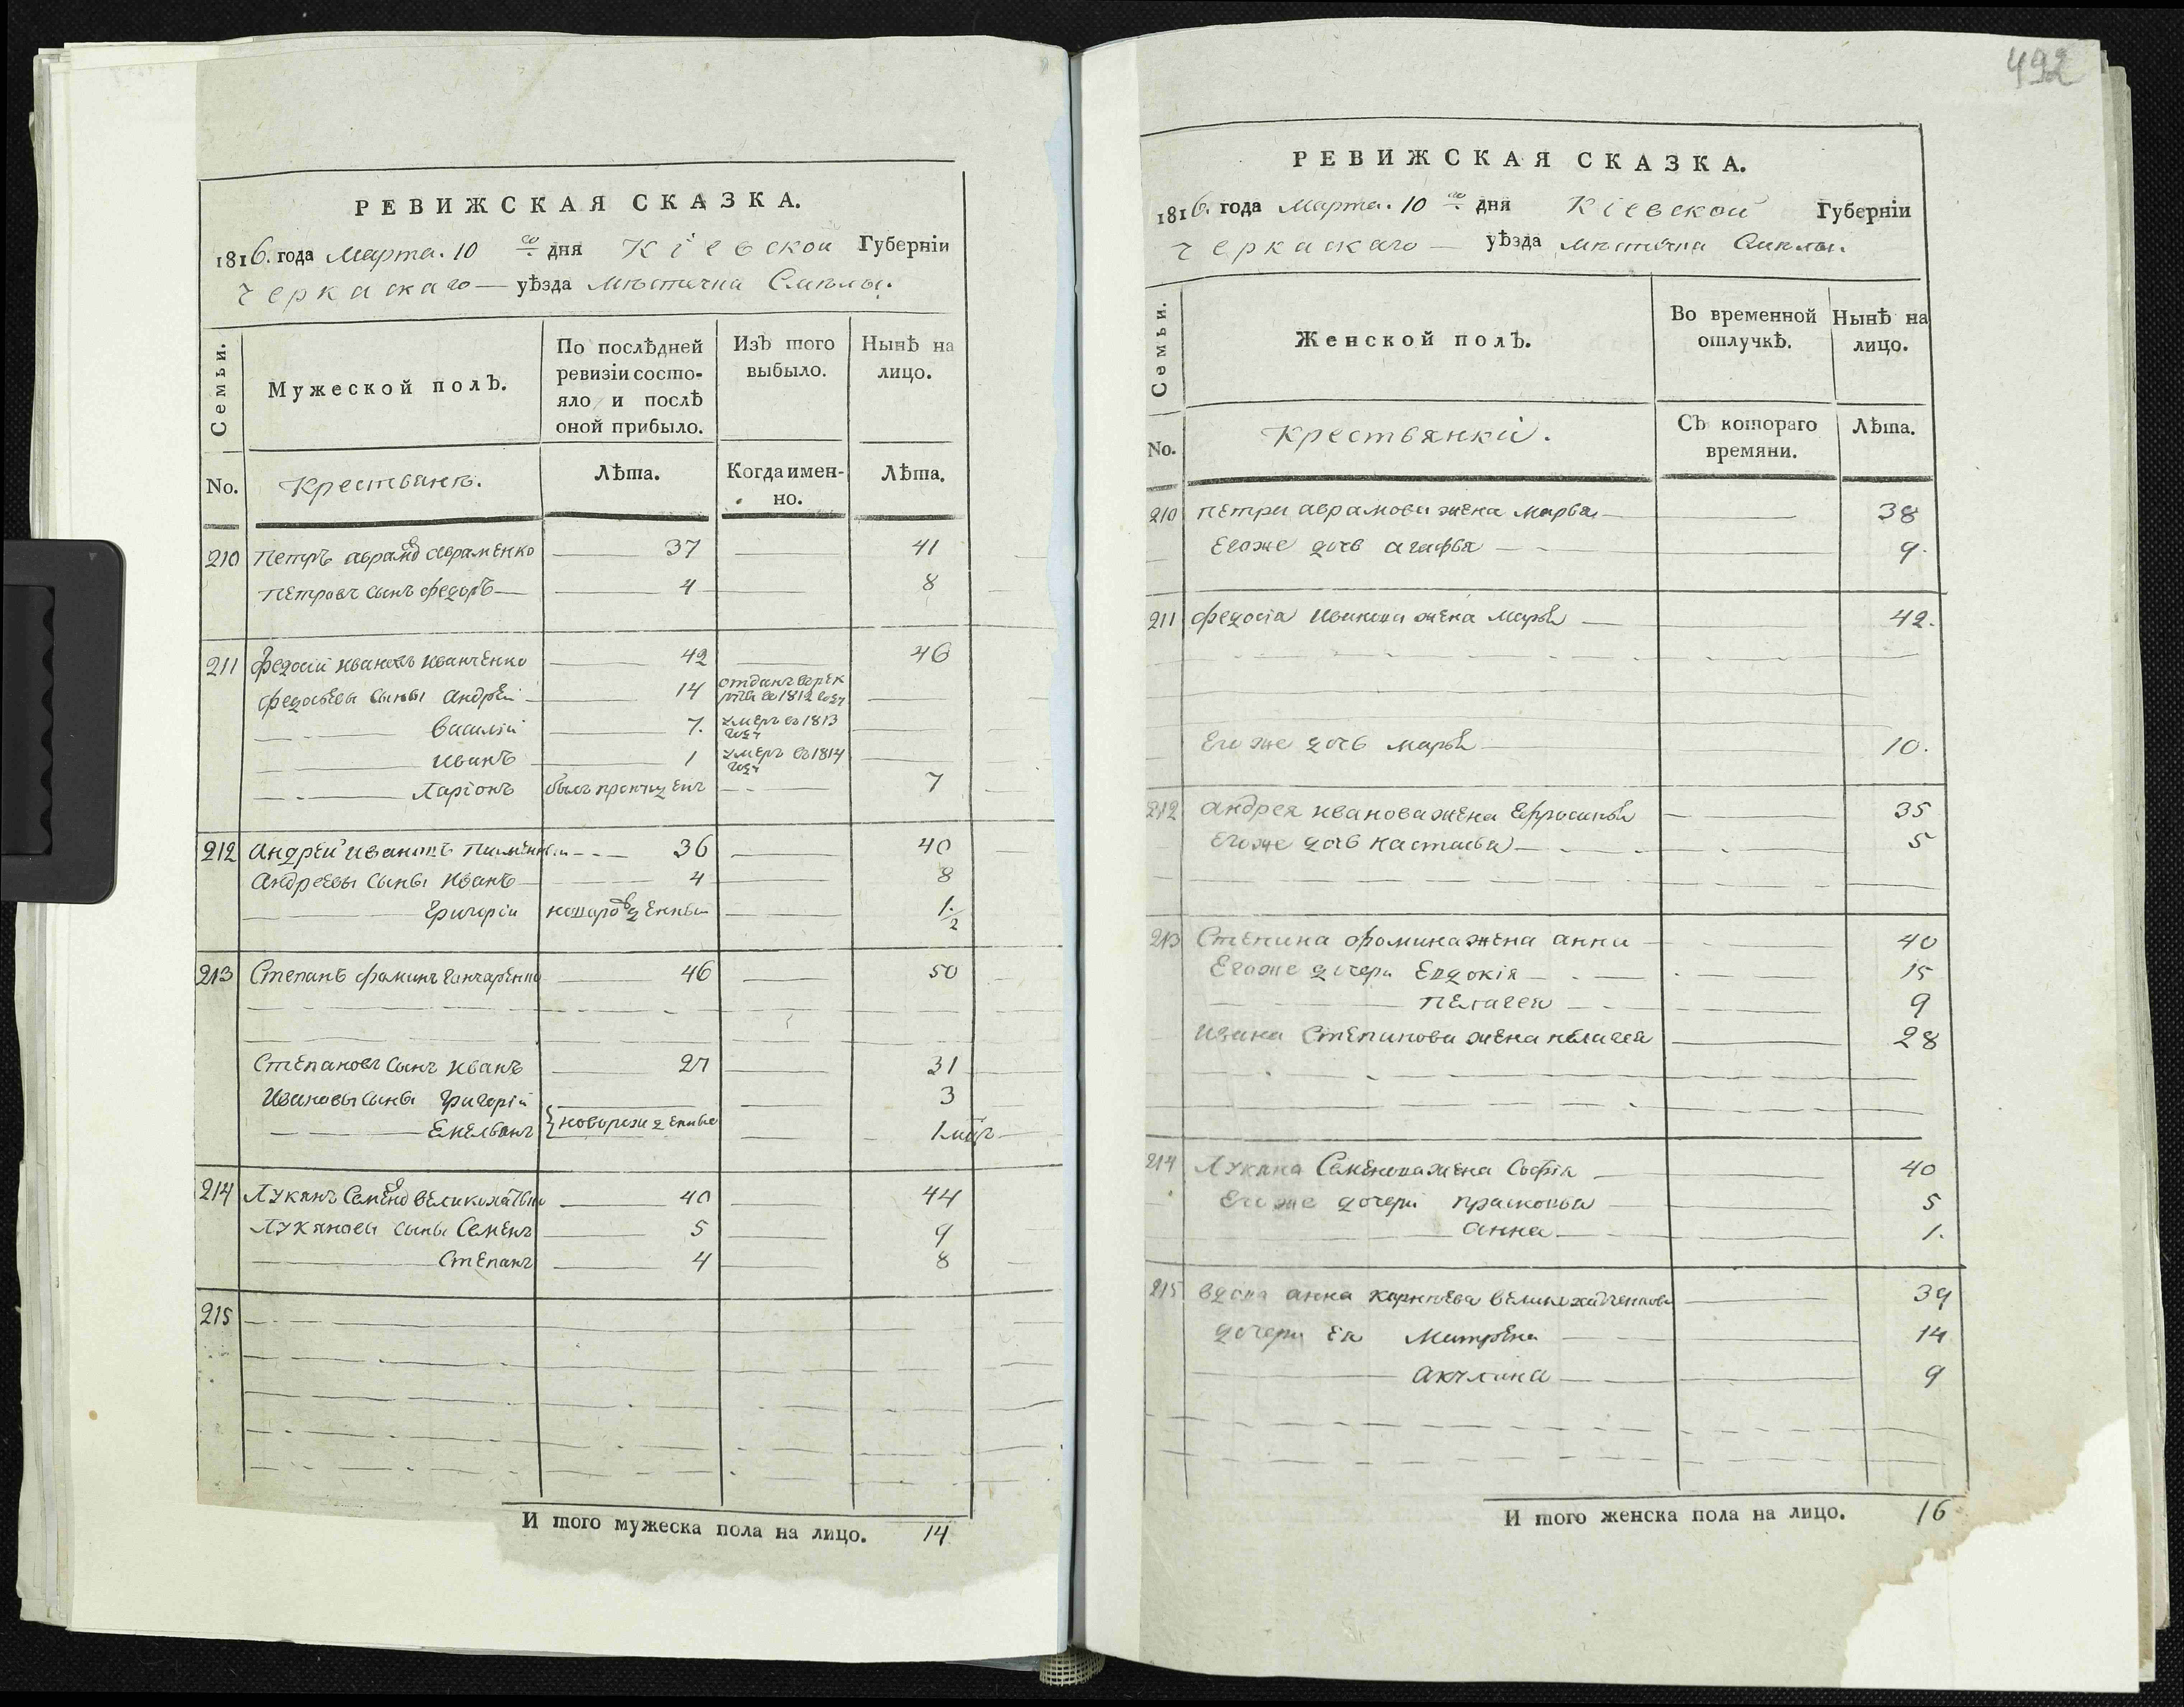 РЕВИЖСКАЯ СКАЗКА.
1816. года Марта. 10 го дня Кіевской Губерніи
Черкаскаго уѣзда мѣстечка Смѣлы.
Семьи.
Мужеской полЪ.
По послѣдней ревизіи состояло и послѣ оной прибыло.
ИзЪ того выбыло.
НынѢ на лицо.
No.
Крестьянъ.
Лѣта.
Когда именно.
Лѣта.
210 Петръ аврамовъ авраменко 37 41
Петровъ сынъ федоръ 4 8
211 федосій ивановъ иванченко 42 46
федосѣевы сыны андрѣй 14 отданъ въ рек въ 1812 году
василій 7. умеръ въ 1813 году
иванъ 1 умеръ въ 1814 году
Ларіонъ былъ пропущенъ 7
212 андрѣй ивановъ 36 40
андрѣевы сыны иванъ 4 8
григорій новорожденный 1/2
213 Степанъ фоминъ ганчаренко 46 50
Степановъ сынъ иванъ 27 31
ивановы сыны григорій 3
Емельянъ новорожденные 1 мцъ
214 Лукянъ Семеновъ 40 44
Лукяновы сыны Семенъ 5 9
Степанъ 4 8
215
И того мужеска пола на лицо. 14
492
РЕВИЖСКАЯ СКАЗКА.
1816. года Марта. 10 го дня Кіевской Губерніи
Черкаскаго уѣзда мѣстечка Смѣлы.
Семьи.
Женской полЪ.
Во временной отлучкѢ.
НынѢ на лицо.
No.
Крестьянки.
СЪ котораго времяни.
Лѣта.
210 петра аврамова жена марья 38
Егоже дочь агафья 9.
211 федосія иванова жена марья 42.
Его же дочь марья 10.
212 андрея иванова жена Ефросинья 35
Егоже дочь настасья 5
213 Степана фомина жена анна 40
Егоже дочери Евдокія 15
пелагея 9
ивана Степанова жена пелагея 28
214 Лукяна Семенова жена Софія 40
Его же дочери прасковья 5
анна 1.
215 вдова анна 39
дочери ея Матрена 14
акулина 9
И того женска пола на лицо. 16